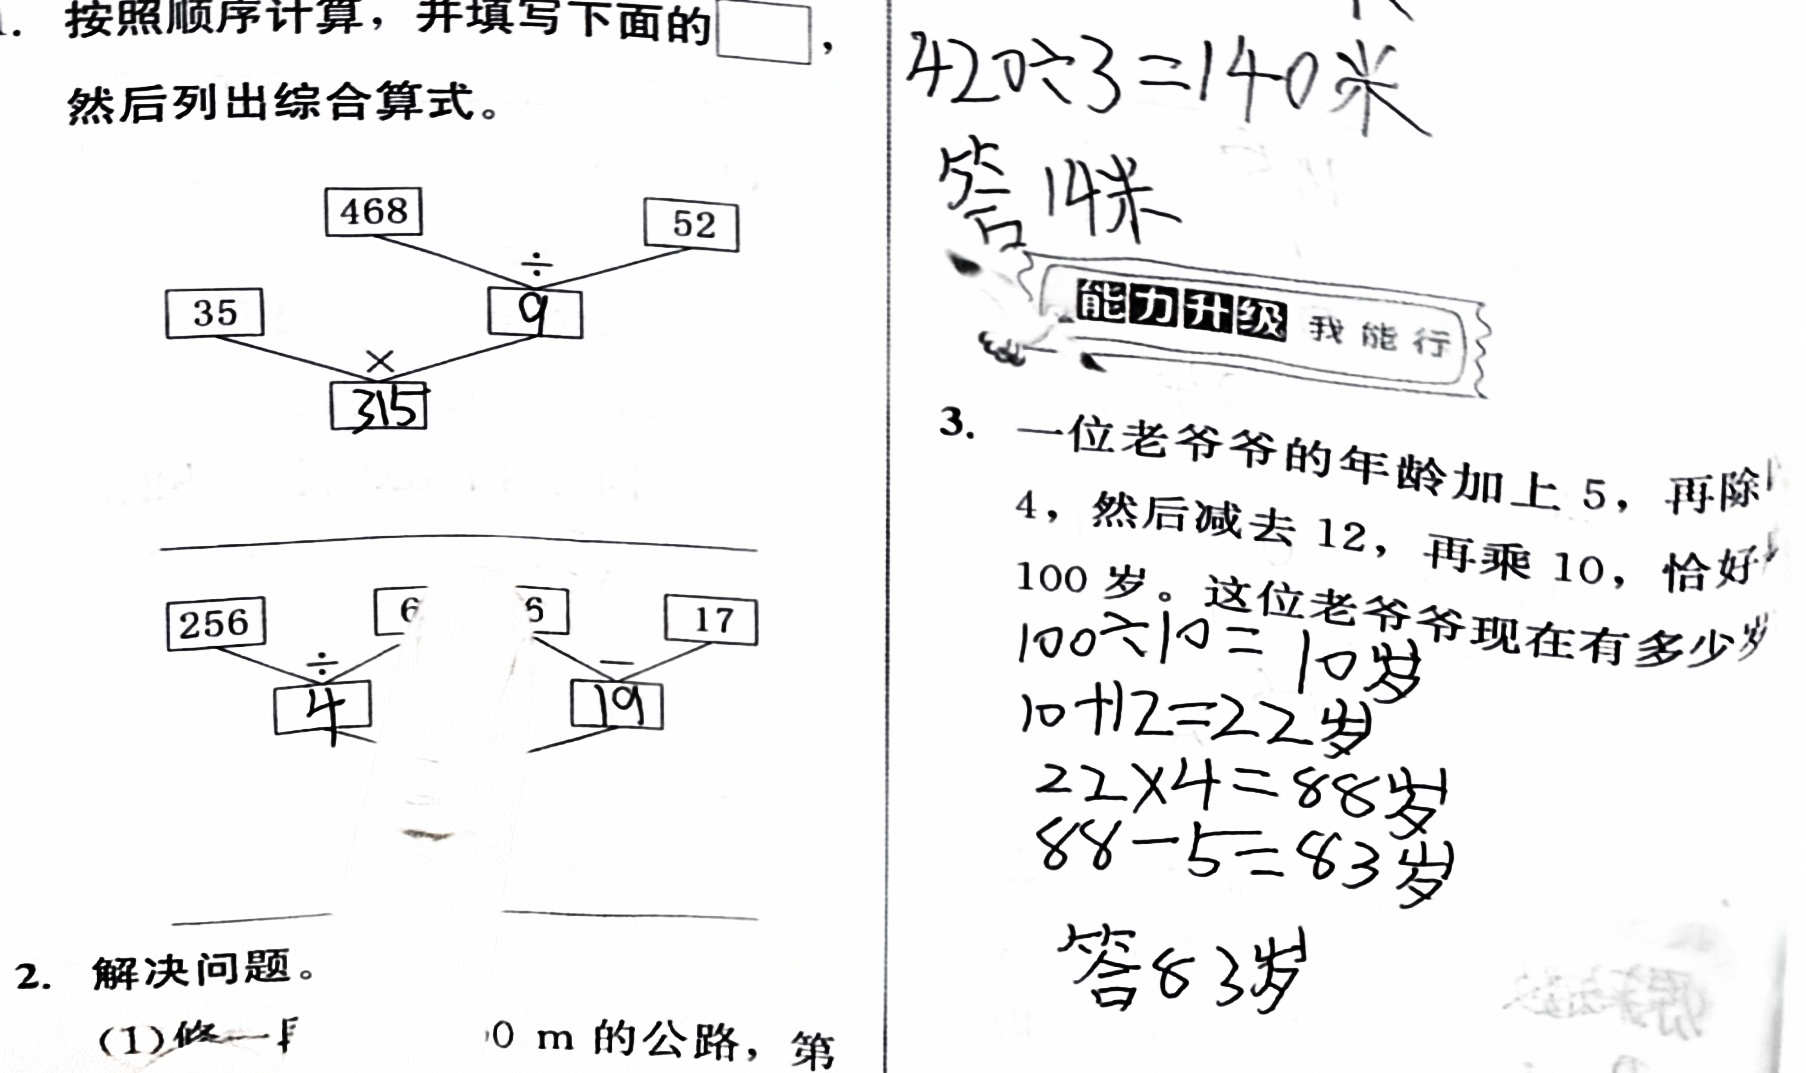 按照顺序计算，并填写下面的□，
然后列出综合算式。
468
52
÷
35
9
×
315
256
17
÷
－
4
19
2. 解决问题。
(1)修一
0 m 的公路，第
420÷3=140米
答 14米
能力升级 我能行
3. 一位老爷爷的年龄加上 5，再除
4，然后减去 12，再乘 10，恰好
100 岁。这位老爷爷现在有多少岁
100÷10= 10岁
10+12=22岁
22×4=88岁
88-5=83岁
答83岁